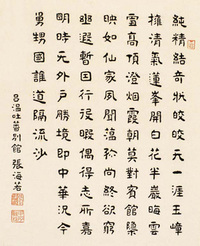 純精結奇狀皎皎天一涯玉嶂
擁清氣蓮峯開白花半巖晦雲
雪高頂澄烟霞朝莫對賓館隱
映如仙家夙聞蘊孤尚終欲窮
幽遐暫因行役暇偶得志所嘉
明時无外戶勝境即中華況今
舅甥國誰道隔流沙
呂溫吐蕃別館 張海若